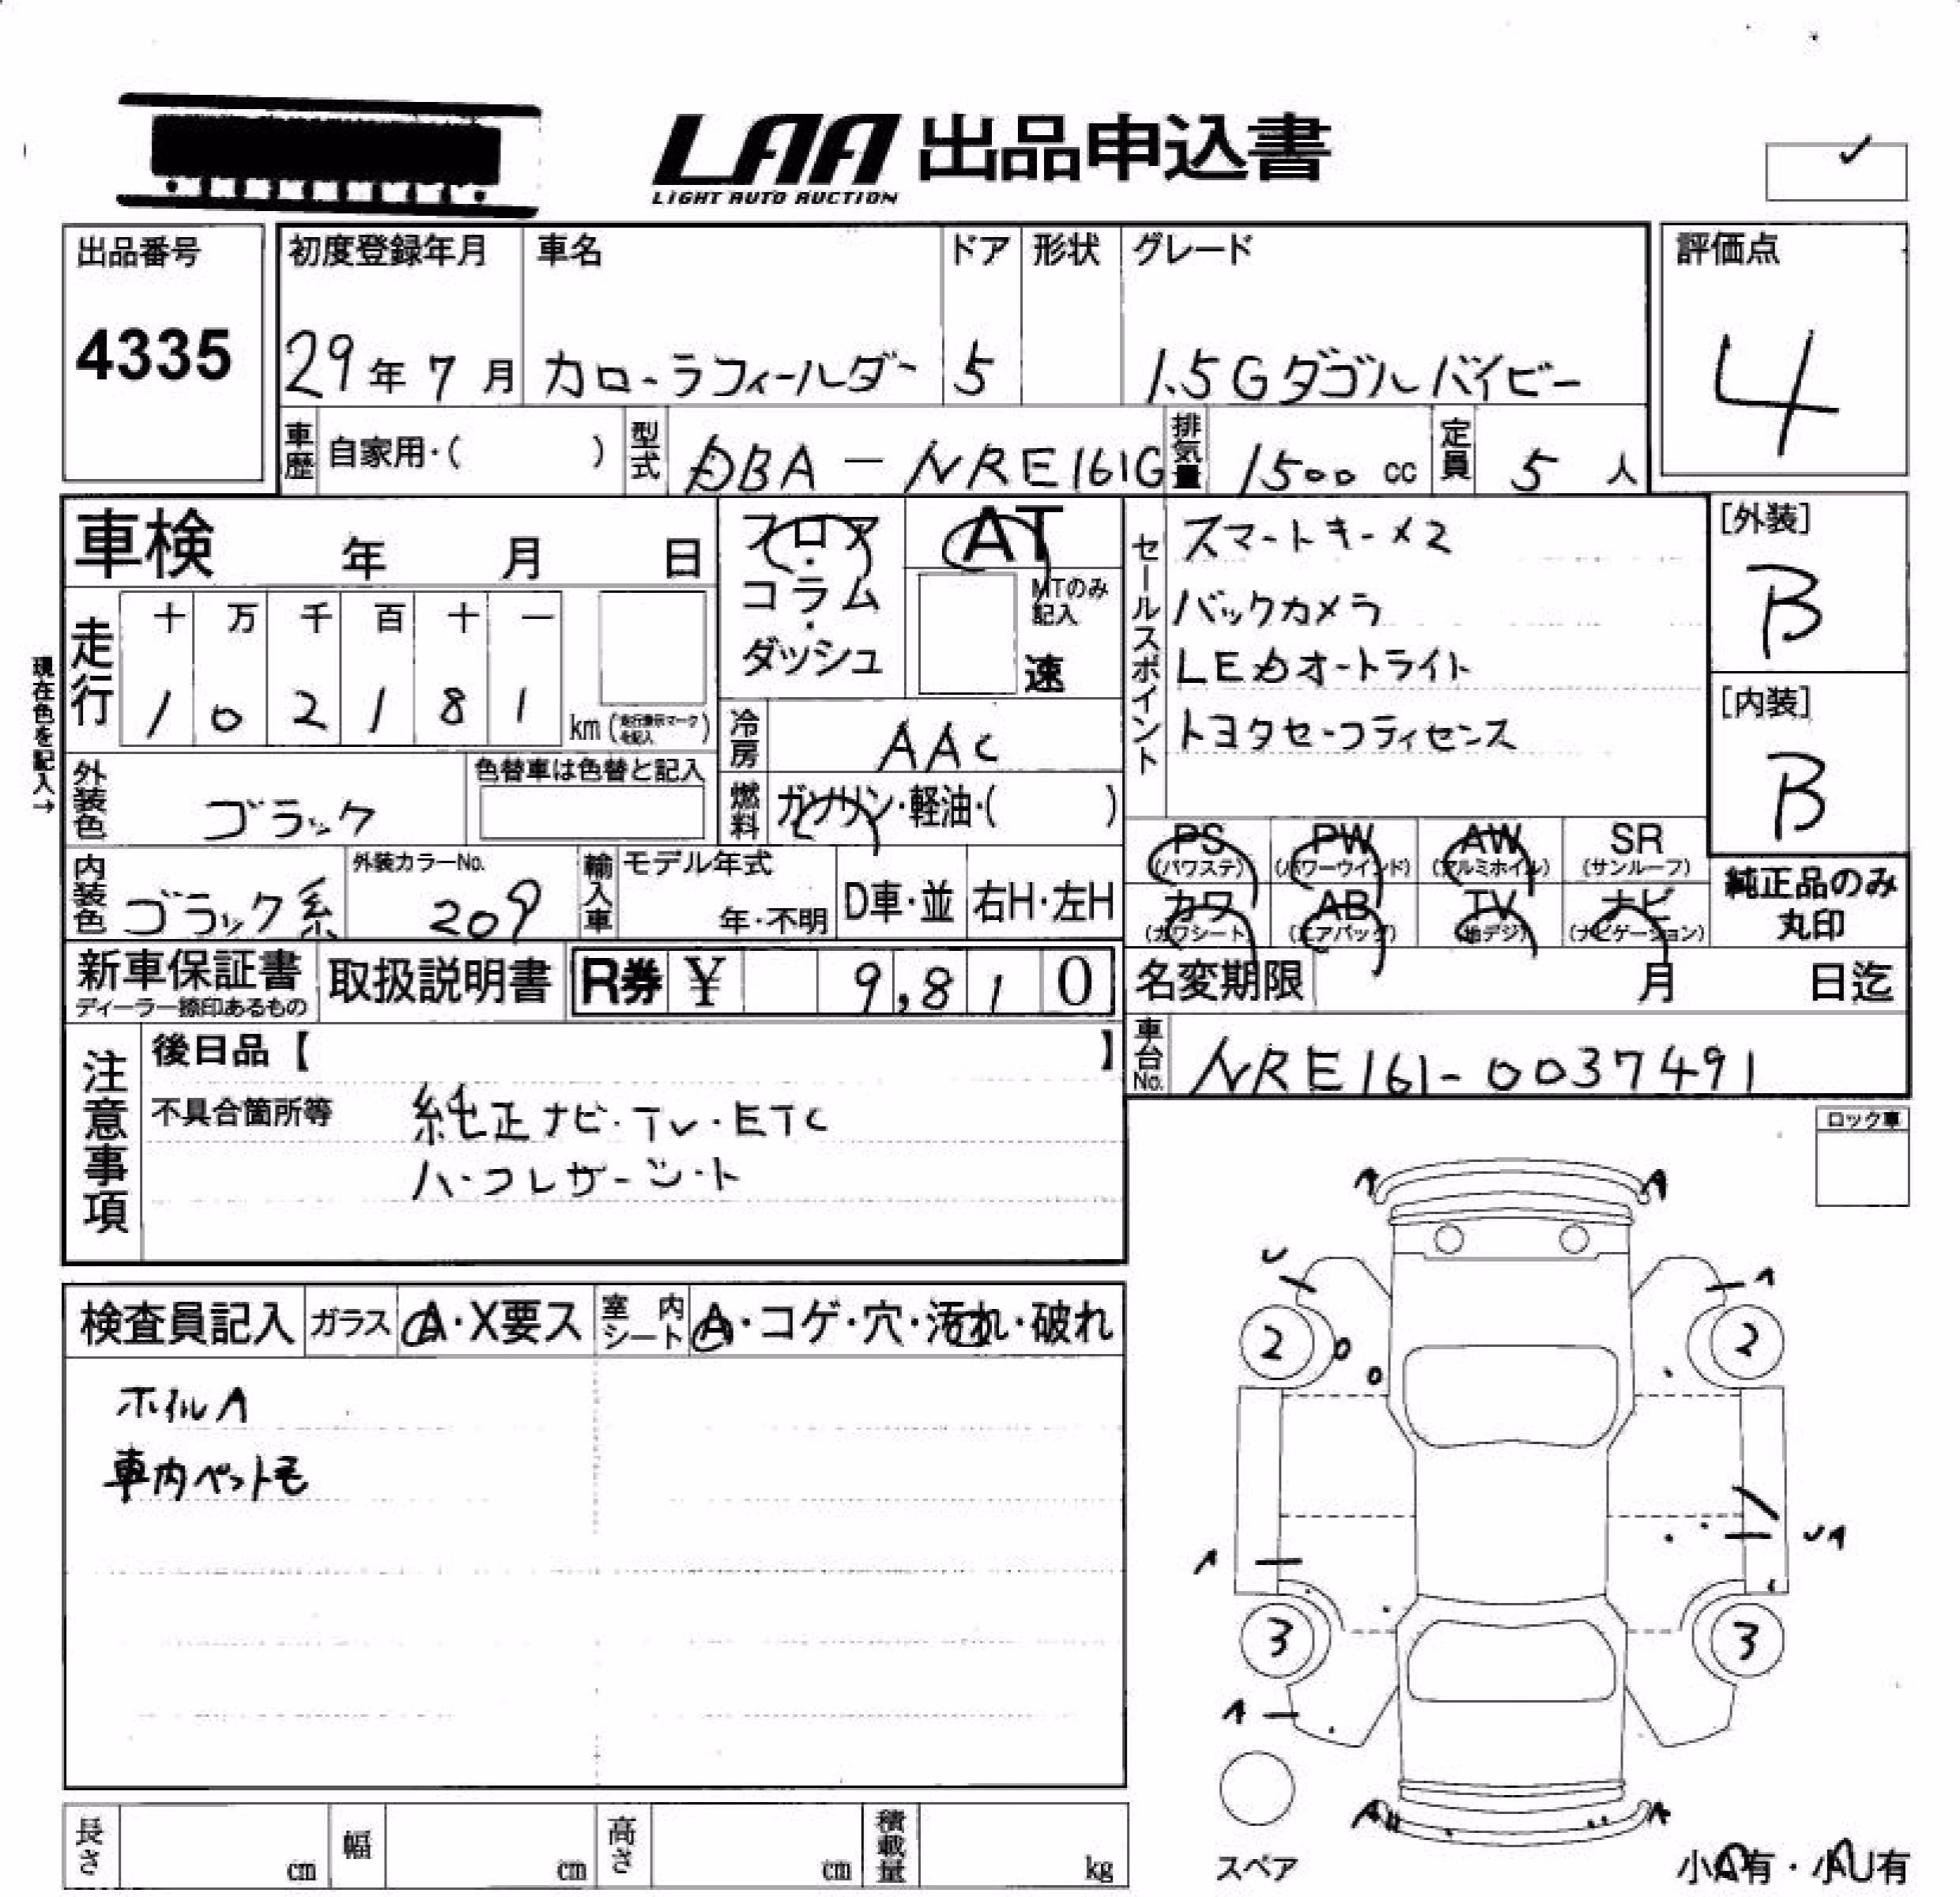 LAA 出品申込書
LIGHT AUTO AUCTION
出品番号
4335
初度登録年月
29年 7月
車名
カローラフィールダー
ドア
5
形状
グレード
1.5G ダブルバイビー
評価点
4
車歴 自家用・( )
型式 DBA-NRE161G
排気量 1500 cc
定員 5 人
車検 年 月 日
フロア・コラム・ダッシュ
AT
MTのみ記入
速
セールスポイント
スマートキー×2
バックカメラ
LEDオートライト
トヨタセーフティセンス
[外装]
B
[内装]
B
現在色を記入→
走行
十 万 千 百 十 一
1 0 2 1 8 1 km
冷房 AAC
外装色 ブラック
色替車は色替と記入
燃料 ガソリン・軽油・( )
PS (パワステ)
PW (パワーウインド)
AW (アルミホイル)
SR (サンルーフ)
カワ (カワシート)
AB (エアバッグ)
TV (地デジ)
ナビ (ナビゲーション)
純正品のみ丸印
内装色 ブラック系
外装カラーNo. 209
輸入車 モデル年式 年・不明
D車・並
右H・左H
新車保証書
ディーラー捺印あるもの
取扱説明書
R券 ¥ 9,810
名変期限 月 日迄
車台No. NRE161-0037491
注意事項
後日品【 】
不具合箇所等 純正ナビ・TV・ETC
ハーフレザーシート
ロック車
検査員記入
ガラス A・X要ス
室内シート A・コゲ・穴・汚れ・破れ
ホイルA
車内ペット毛
A A
U A
2 2
A UA
3 3
A
A A
スペア
小A有・小U有
長さ cm
幅 cm
高さ cm
積載量 kg